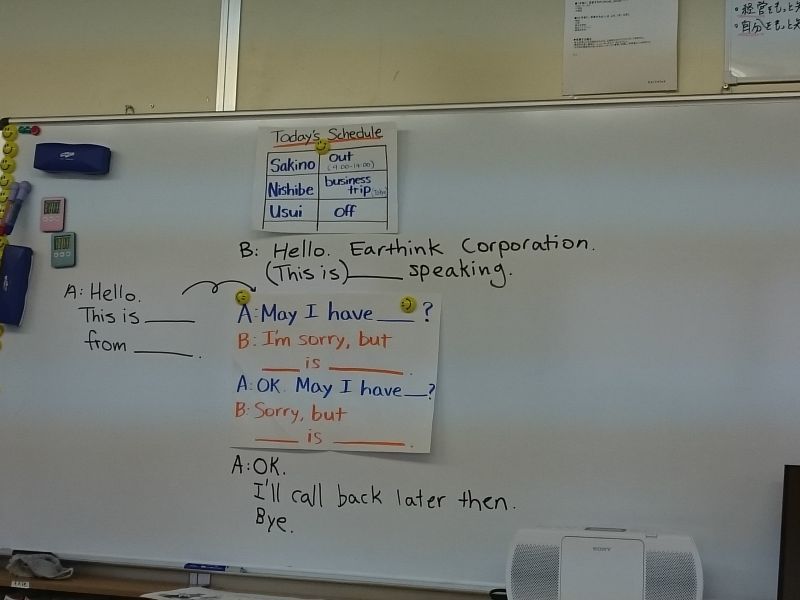 ・経営をもっと
・自分をもっと
Today's Schedule
Sakino out
(9:00-14:00)
Nishibe business
trip
Usui off
B: Hello. Earthink Corporation.
(This is)____ speaking.
A: Hello.
This is ____
from ____.
A: May I have ____?
B: I'm sorry, but
____ is ____.
A: OK. May I have ____?
B: Sorry, but
____ is ____.
A: OK.
I'll call back later then.
Bye.
SONY